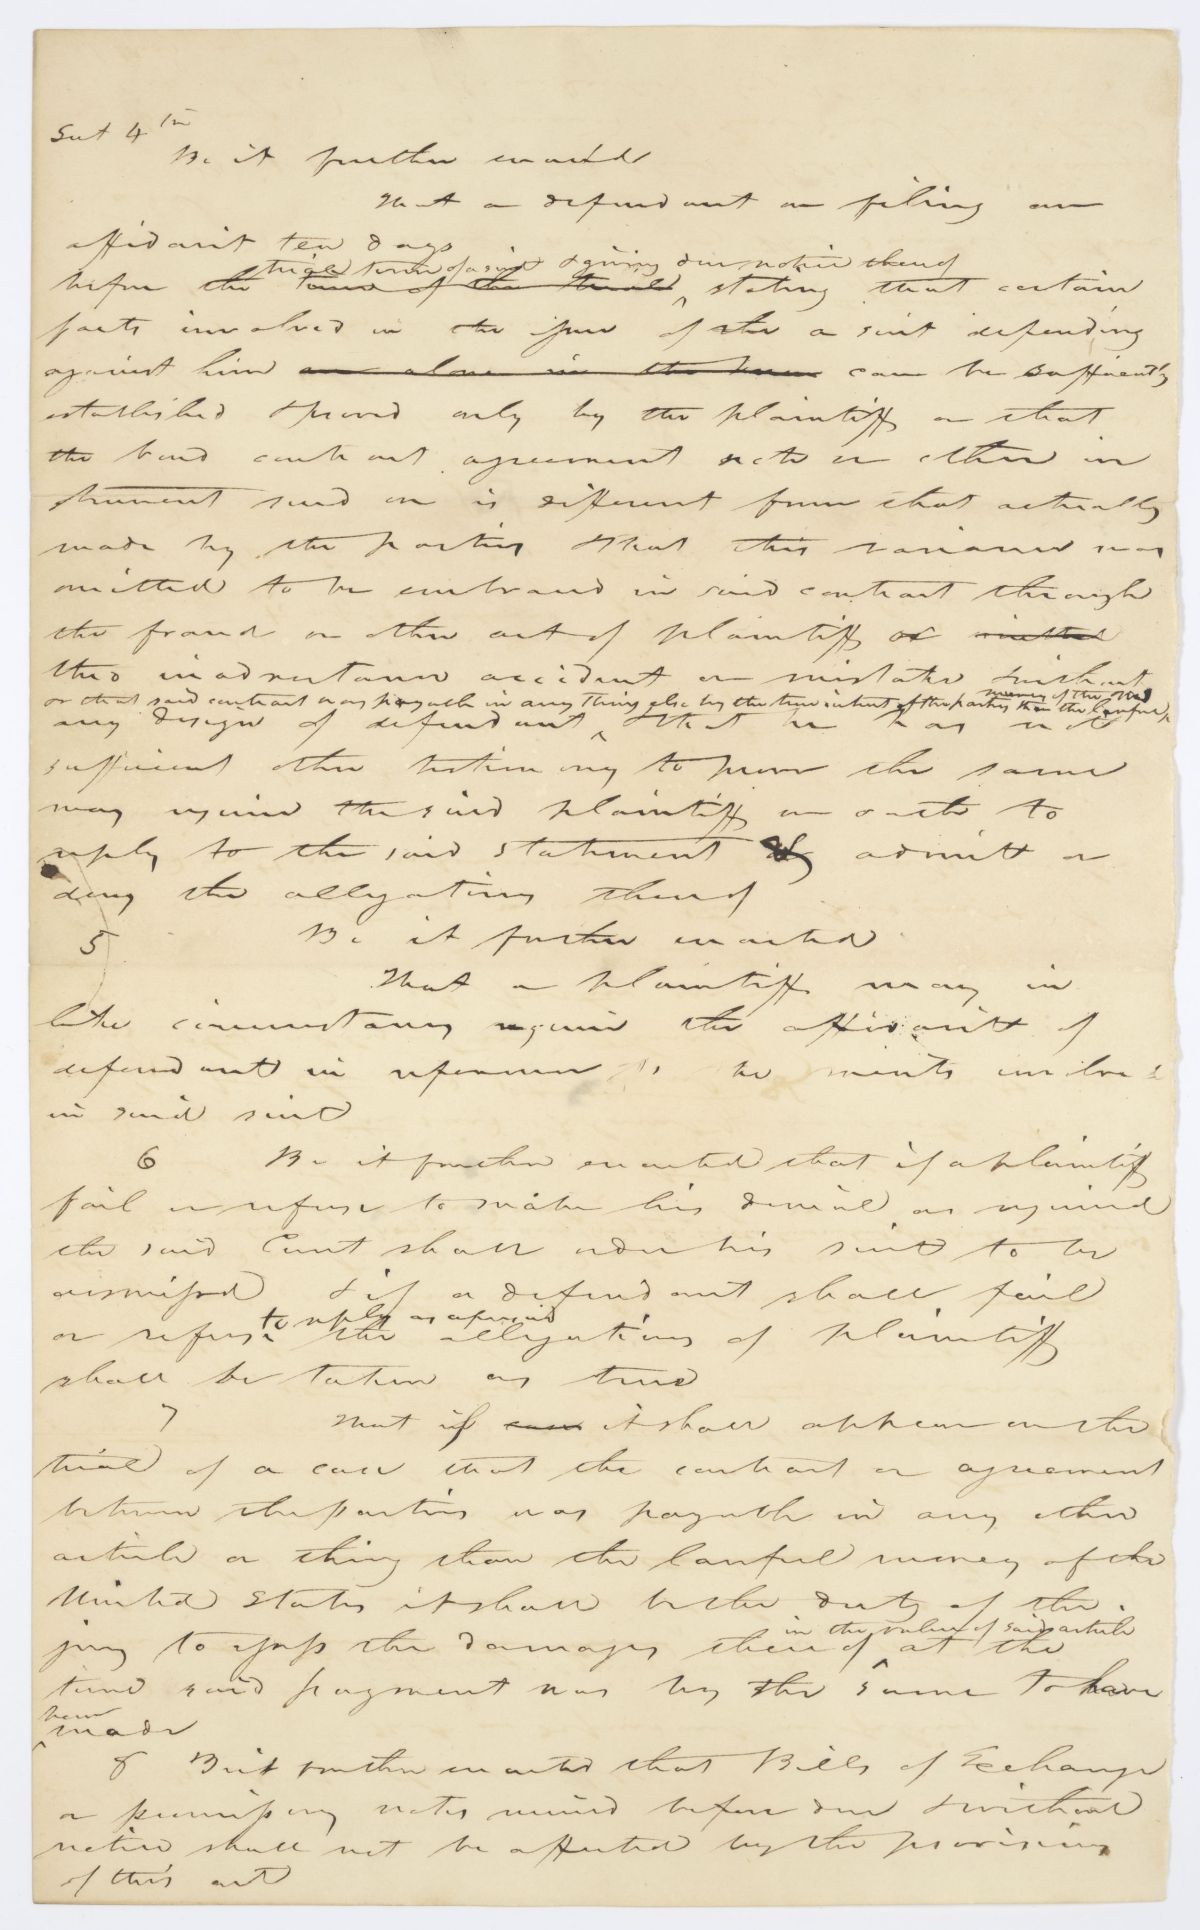 Sect 4th
Be it further enacted
That a defendant on filing an
affidavit ten days
trial term of a suit & giving due notice thereof
before the term of the trial, stating that certain
facts involved in the issue of the a suit depending
against him can be sufficiently
established & proved only by the plaintiff or that
the bond contract agreement note or other in
strument sued on is different from that actually
made by the parties & that this variance was
omitted to be embraced in said contract through
the fraud or other act of plaintiff or omitted
thro inadvertance accident or mistake without
or that said contract was payable in any thing else by the true intent of the parties than the lawful
money of the
any design of defendant & that he has not
sufficient other testimony to prove the same
may require the said plaintiff on oath to
reply to the said statement & admitt or
deny the allegations thereof
5 Be it further enacted
That a plaintiff may in
like circumstances require the affidavitt of
defendant in reference to the merits involved
in said suit
6 Be it further enacted that if a plaintiff
fail or refuse to make his denial as required
the said Court shall order his suit to be
dismissed & if a defendant shall fail
to reply as aforesaid
or refuse the allegations of plaintiff
shall be taken as true
7 That if case it shall appear on the
trial of a case that the contract or agreement
between the parties was payable in any other
article or thing than the lawful money of the
United States it shall be the duty of the
in the value of said article
jury to assess the damages thereof at the
time said payment was by the same to have
been
made
8 Be it further enacted that Bills of Exchange
or promissory notes before due & without
notice shall not be affected by the provisions
of this act